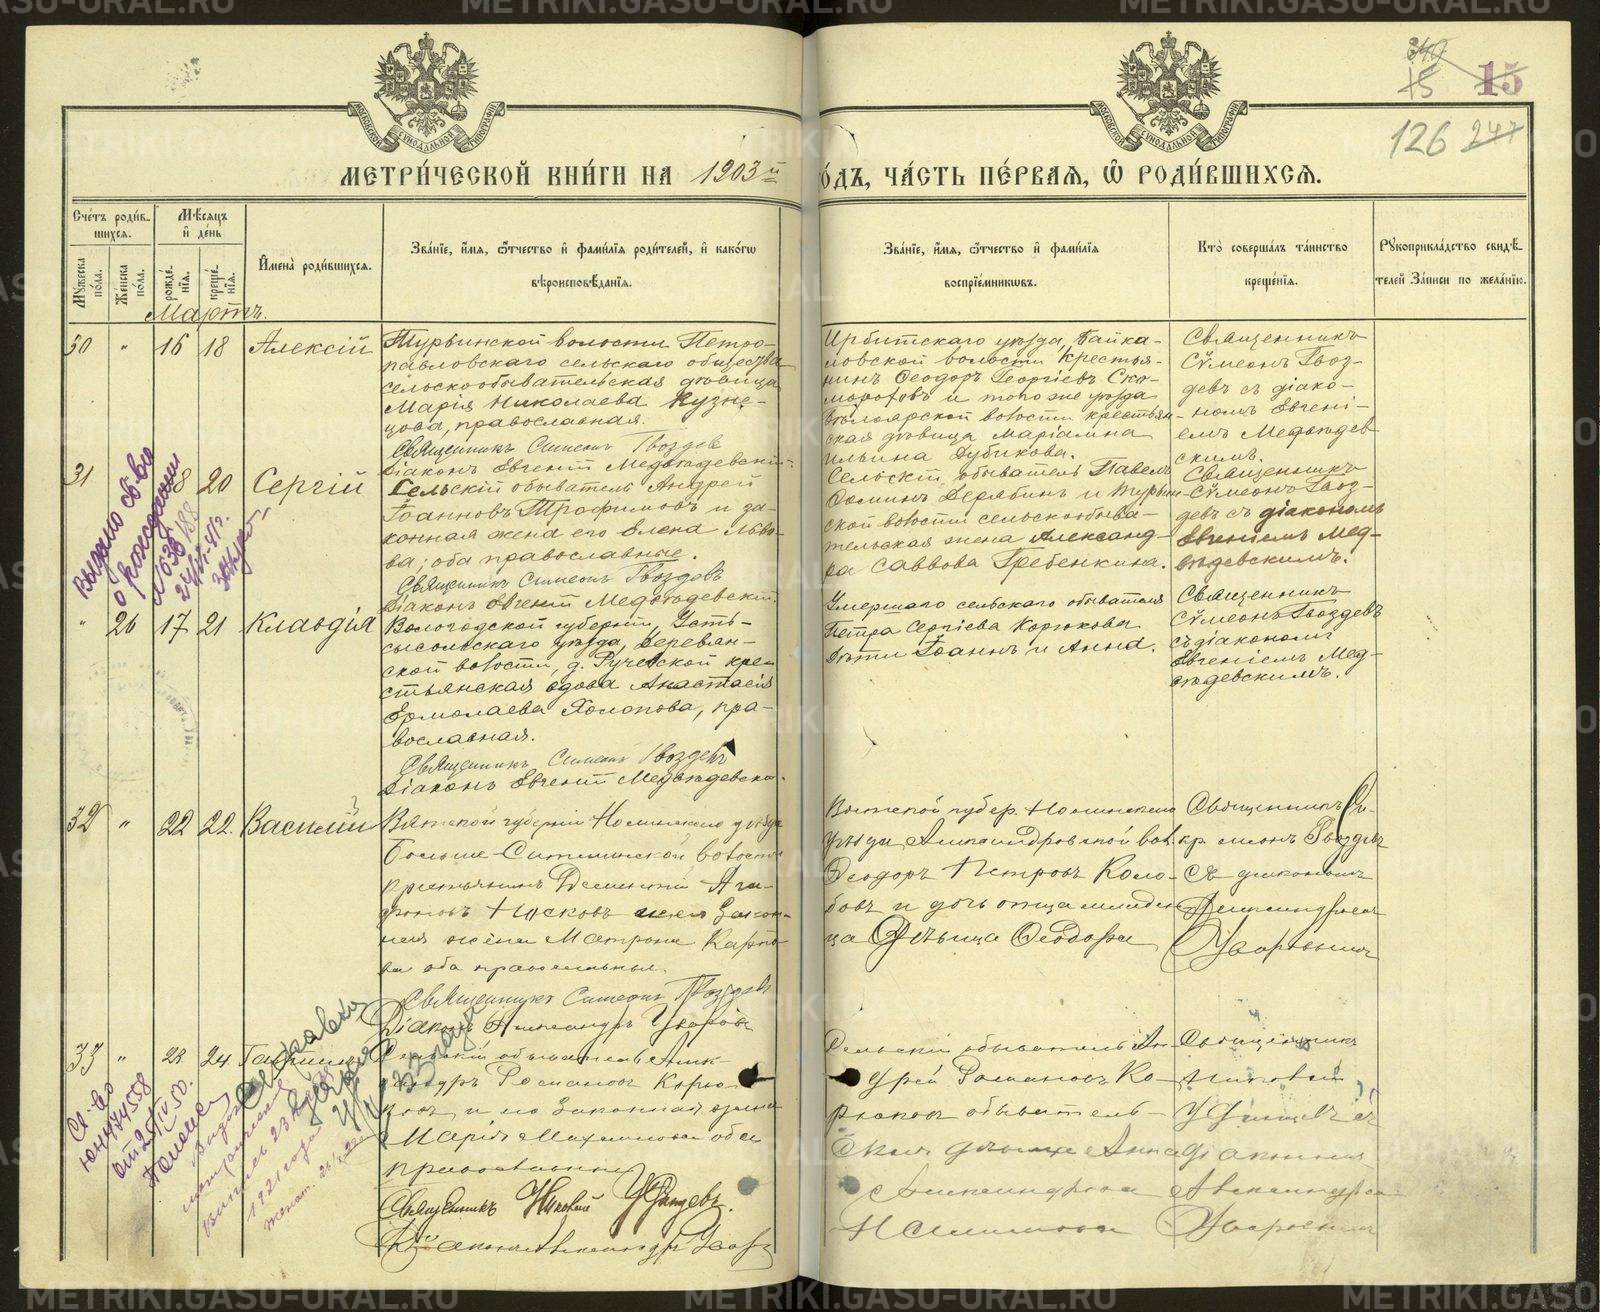 METRIKI.GASO-URAL.RU
МОСКОВСКОЙ СѴНОДАЛЬНОЙ ТИПОГРАФІИ
340
15
15
126 247
МЕТРИ́ЧЕСКОЙ КНИ́ГИ НА 1903й
О́ДЪ, ЧА́СТЬ ПЕ́РВАЯ, Ѡ РОДИ́ВШИХСЯ.
Сче́тъ роди́вшихся.
Му́жеска по́ла.
Же́нска по́ла.
Мѣ́сяцъ и де́нь
рожде́нїя.
креще́нїя.
И҆мена̀ роди́вшихся.
Зва́нїе, и҆́мя, ѻ҆́тчество и҆ фами́лїя роди́телей, и҆ како́гѡ вѣроисповѣ́данїя.
Зва́нїе, и҆́мя, ѻ҆́тчество и҆ фами́лїя воспрїе́мникѡвъ.
Кто̀ соверша́лъ та́инство креще́нїя.
Рꙋкоприкла́дство свидѣ́телей за́писи по жела́нїю.
Мартъ.
30 " 16 18 Алексій
Турьинской волости Петро-
павловскаго сельскаго общества
сельскообывательская дѣвица
Марія Николаева Кузне-
цова, православная.
Священникъ Симеонъ Гвоздевъ
Діаконъ Евгеній Медвѣдевскій
Ирбитскаго уѣзда, Байка-
ловской волости крестья-
нинъ Ѳеодоръ Георгіевъ Ско-
мороховъ и того же уѣзда
волости крестьян-
ская дѣвица Маріамна
Ильина Дубикова.
Священникъ
Сѵмеонъ Гвоз-
девъ съ діако-
номъ Евгені-
емъ Медвѣдев
скимъ.
31 18 20 Сергій
Сельскій обыватель Андрей
Іоанновъ Трофимовъ и за-
конная жена его Елена Льво-
ва; оба православные.
Священникъ Симеонъ Гвоздевъ
Діаконъ Евгеній Медвѣдевскій.
Сельскій обыватель Павелъ
Ѳоминъ Дерябинъ и Турьин-
ской волости сельскообыва-
тельская жена Александ-
ра Саввова Гребенкина.
Священникъ
Сѵмеонъ Гвоз-
девъ съ діакономъ
Евгеніемъ Мед-
вѣдевскимъ.
Выдано св-во
о рождении
" 26 17 21 Клавдія
Вологодской губерніи, Усть-
сысольскаго уѣзда, Деревян-
ской волости, д. Ручевской кре-
стьянская вдова Анастасія
Ермолаева Холопова, пра-
вославная.
Священникъ Симеонъ Гвоздевъ
Діаконъ Евгеній Медвѣдевскій.
Умершаго сельскаго обывателя
Петра Сергіева Корюкова
дѣти Іоаннъ и Анна.
Священникъ
Сѵмеонъ Гвоздевъ
съ діакономъ
Евгеніемъ Мед-
вѣдевскимъ.
32 " 22 22. Василій
Вятской губерніи Нолинскаго уѣзда
Больше-Ситминской волости
крестьянинъ Дементій Ага-
фоновъ Носковъ закон-
ная жена Матрона Карпо-
ва оба православные.
Священникъ Симеонъ Гвоздевъ
Діаконъ Александръ Уваровъ
Вятской губер. Нолинскаго
уѣзда Александровской вол. кр.
Ѳеодоръ Петровъ Коло-
бовъ и дочь отца младен-
ца дѣвица Ѳеодора
Священникъ Си-
меонъ Гвоздевъ
съ діакономъ
Александромъ
Уваровымъ
33 " 23 24
Сельскій обыватель Алек-
сандръ Романовъ Корю-
ковъ и его законная жена
Марія Михаилова оба
православные
Священникъ Николай Удинцевъ.
Діаконъ Александръ Уваровъ
Сельскій обыватель Ан-
дрей Романовъ Ко-
рюковъ обыватель-
ская дѣвица Анна
Александрова
Священникъ
Николай
Удинцевъ съ
діакономъ
Александромъ
Уваровымъ
Св-во
1921 года